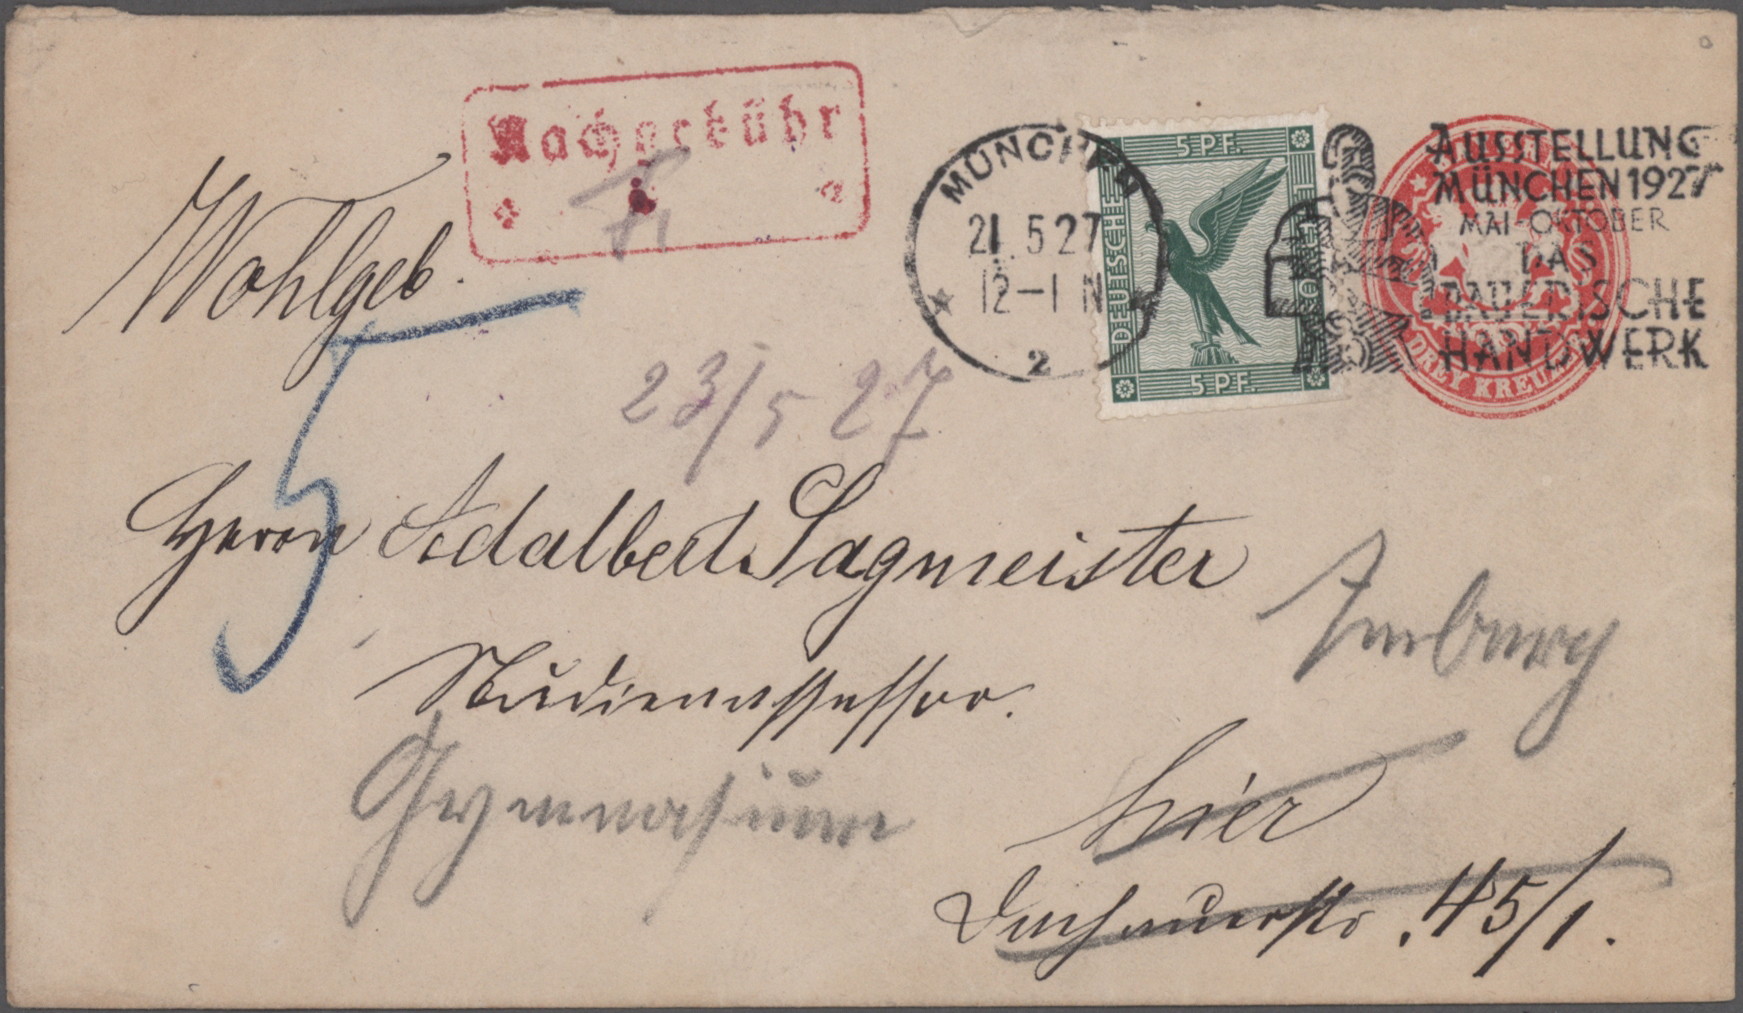 Nachgebühr
Wohlgeb.
5
MÜNCHEN
21.5.27
12-1 N
2
5 PF.
DEUTSCHE
5 PF.
AUSSTELLUNG
MÜNCHEN 1927
MAI-OKTOBER
DAS
BAYERISCHE
HANDWERK
DREY KREUZER
23/5 27
Herrn Adalbert Sagmeister
Studienassessor.
Gymnasium
hier
Dachauerstr. 45/1.